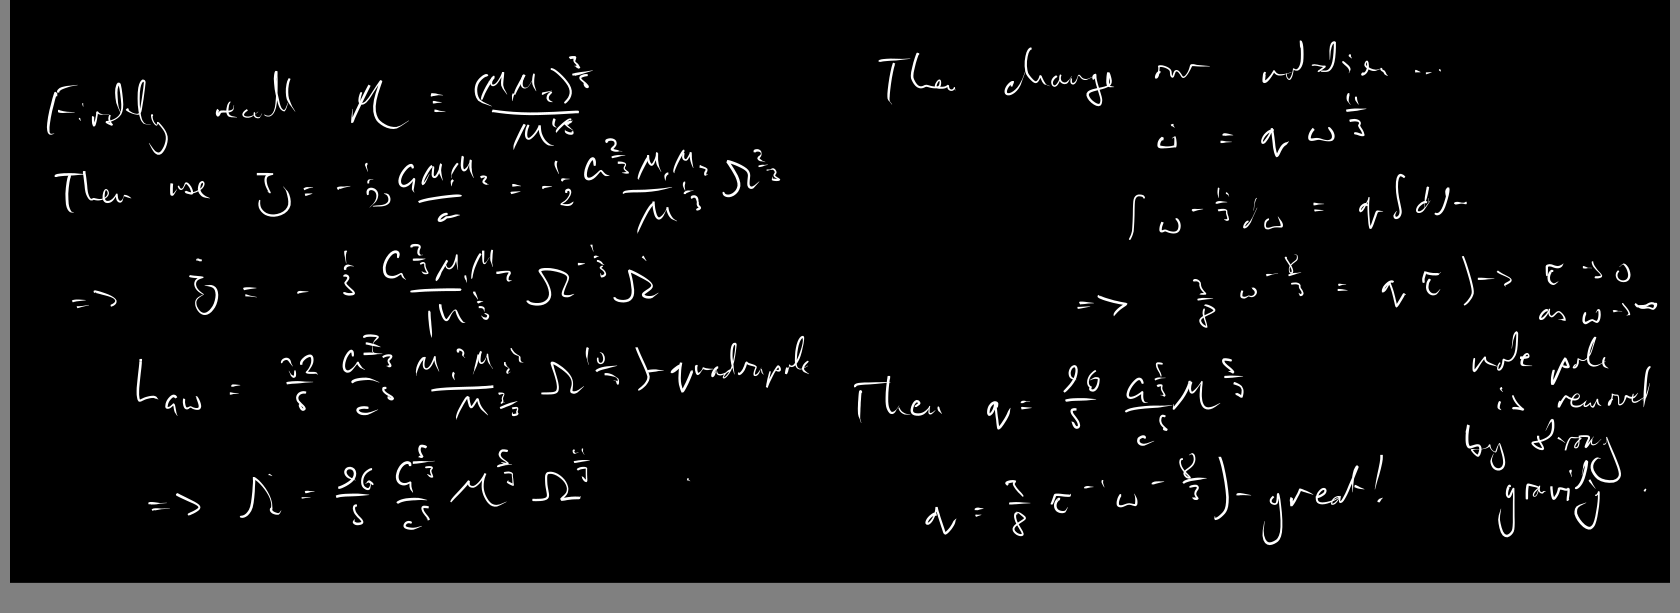 Firstly recall M ≡ (M₁M₂)^{3/5} / M^{1/5}
Then use E = -1/2 GM₁M₂/a = -1/2 G^{2/3} M₁M₂ / M^{1/3} Ω^{2/3}
=> Ė = - 1/3 G^{2/3} M₁M₂ / M^{1/3} Ω^{-1/3} Ω̇
L_GW = 32/5 G^{7/3}/c⁵ M₁²M₂² / M^{2/3} Ω^{10/3} }- quadrupole
=> Ω̇ = 96/5 G^{5/3}/c⁵ M^{5/3} Ω^{11/3}
Then change our notation ...
ω̇ = q ω^{11/3}
∫ ω^{-11/3} dω = q ∫ dt
=> 3/8 ω^{-8/3} = q τ }-> τ -> 0
as ω -> ∞
note pole
is removed
by strong
gravity.
Then q = 96/5 G^{5/3}/c⁵ M^{5/3}
q = 3/8 τ^{-1} ω^{-8/3} }- great!